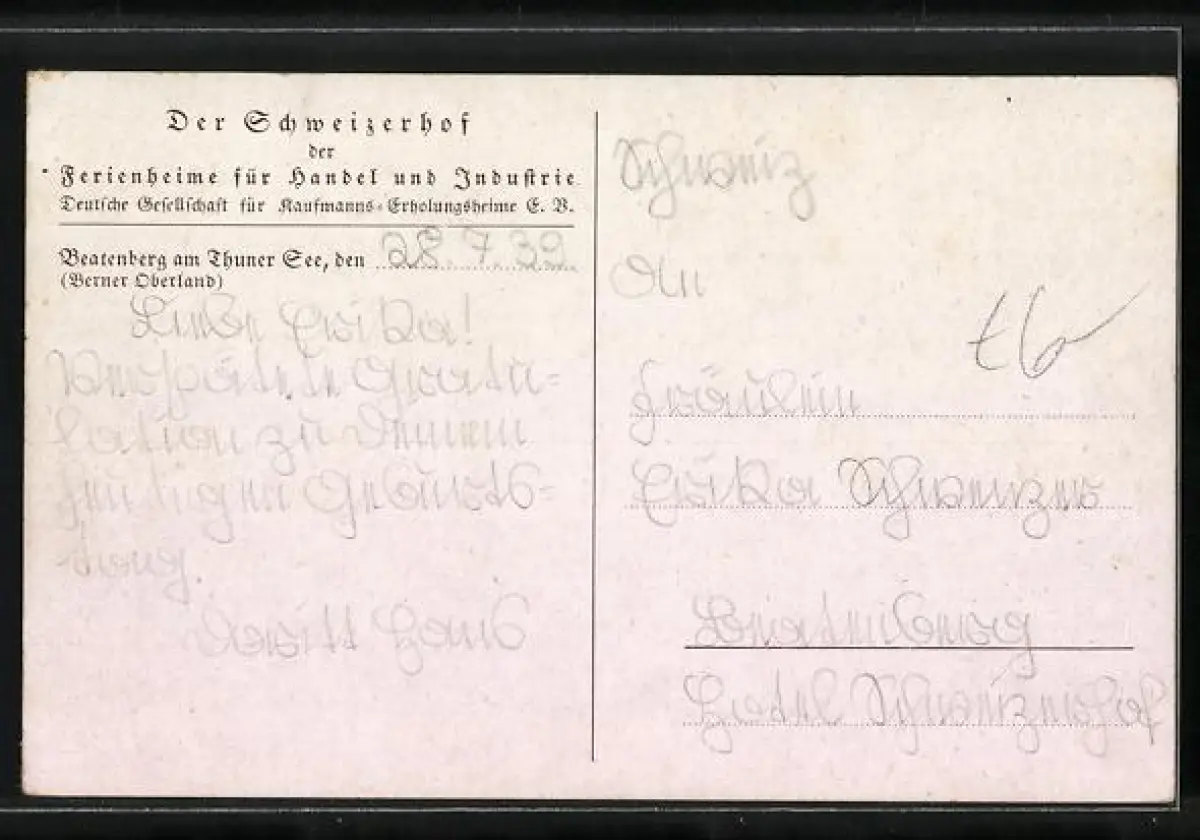 Der Schweizerhof
der
Ferienheime für Handel und Industrie
Deutsche Gesellschaft für Kaufmanns-Erholungsheime E. V.
Beatenberg am Thuner See, den 28.7.39
(Berner Oberland)
Liebe Erika!
Verspätete Gratu=
lation zu Deinem
heutigen Geburts=
tag.
Schweiz
An
Fräulein
Erika Schweizer
Beatenberg
Hotel Schweizerhof